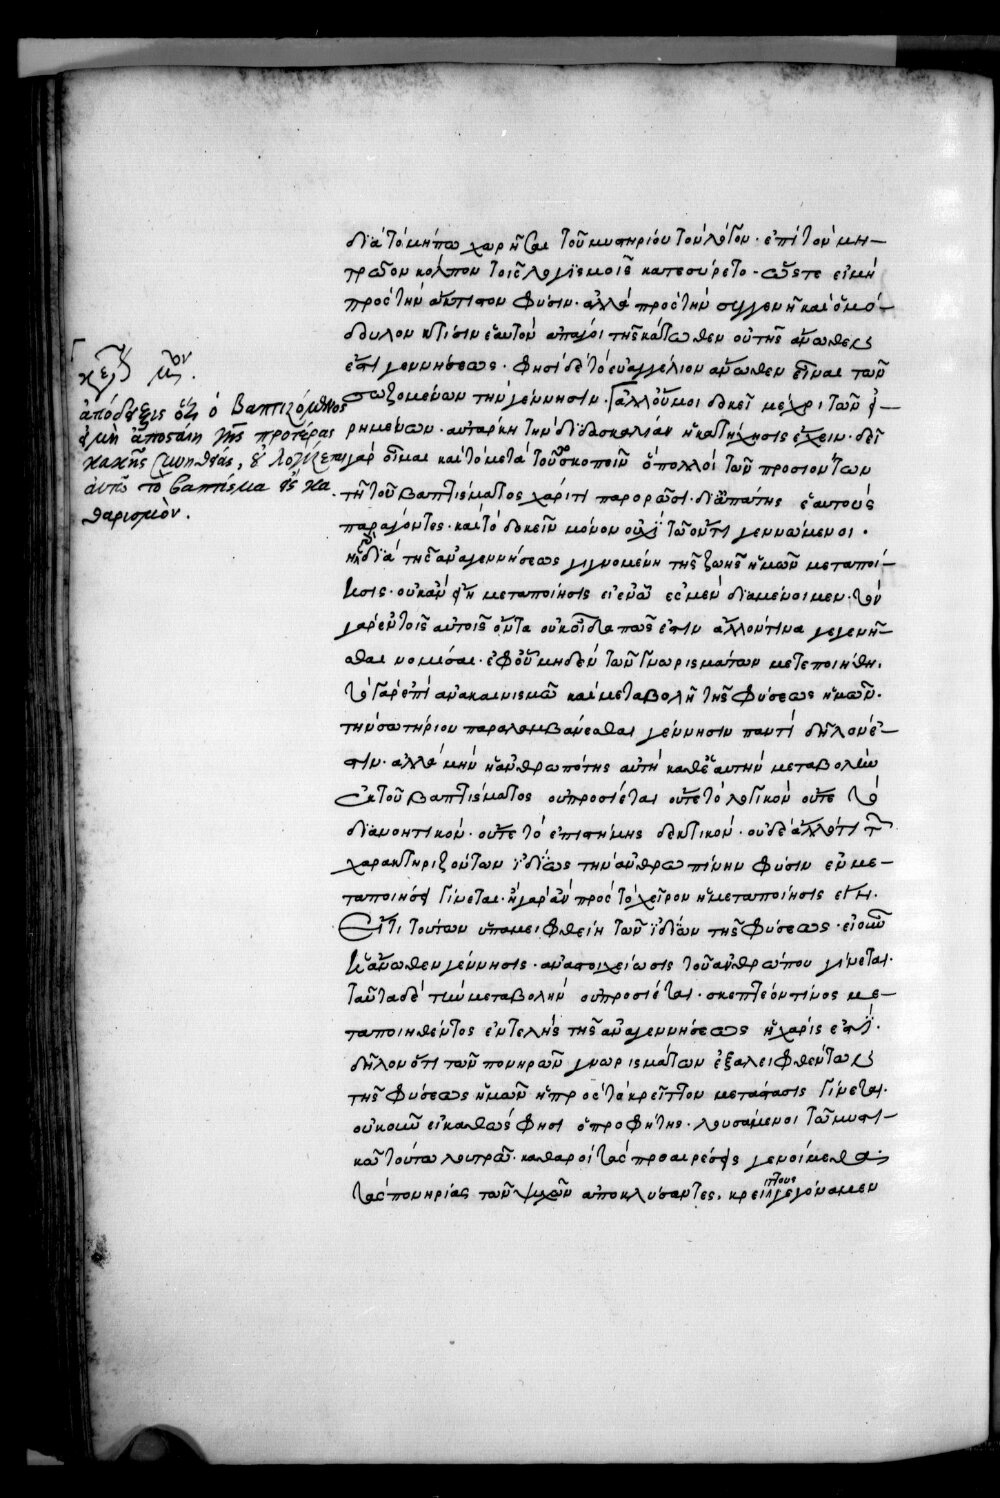 διὰ τὸ μήπω χωρῆσαι τοῦ μυστηρίου τὸν λόγον· ἐπὶ τὸν μη-
τρῶον κόλπον τοῖς λογισμοῖς κατεσύρετο· ὥστε εἰ μὴ
πρὸς τὴν ἄκτιστον φύσιν· ἀλλὰ πρὸς τὴν συγγενῆ καὶ ὁμό-
δουλον κτίσιν ἑαυτὸν ἀπάγοι τῆς κάτωθεν οὐ τῆς ἄνωθεν
ἐστὶ γεννήσεως· φησὶ δὲ τὸ εὐαγγέλιον ἄνωθεν εἶναι τῶν
σωζομένων τὴν γέννησιν· ἀλλ' οὔ μοι δοκεῖ μέχρι τῶν εἰ-
ρημένων· αὐτάρκη τὴν διδασκαλίαν ἡ κατήχησις ἔχειν· δεῖ
γὰρ οἶμαι καὶ τὸ μετὰ τοῦτο σκοπεῖν ὃ πολλοὶ τῶν προσιόντων
τῇ τοῦ βαπτίσματος χάριτι παρορῶσι· δι' ἀπάτης ἑαυτοὺς
παράγοντες· καὶ τὸ δοκεῖν μόνον οὐχὶ τῷ ὄντι γεννώμενοι·
ἡ γὰρ διὰ τῆς ἀναγεννήσεως γιγνομένη τῆς ζωῆς ἡμῶν μεταποί-
ησις· οὐκ ἂν εἴη μεταποίησις εἰ ἐν ᾧ ἐσμὲν διαμένοιμεν· τὸν
γὰρ ἐν τοῖς αὐτοῖς ὄντα οὐκ οἶδα πῶς ἔστιν ἄλλόν τινα γεγενῆ-
σθαι νομίσαι· ἐφ' οὗ μηδὲν τῶν γνωρισμάτων μετεποιήθη·
τὸ γὰρ ἐπὶ ἀνακαινισμῷ καὶ μεταβολῇ τῆς φύσεως ἡμῶν·
τὴν σωτήριον παραλαμβάνεσθαι γέννησιν παντὶ δῆλόν ἐ-
στιν· ἀλλὰ μὴν ἡ ἀνθρωπότης αὐτὴ καθ' ἑαυτὴν μεταβολὴν
ἐκ τοῦ βαπτίσματος οὐ προσίεται οὔτε τὸ λογικὸν οὔτε τὸ
διανοητικόν· οὔτε τὸ ἐπιστήμης δεκτικόν· οὐδὲ ἄλλό τι τῶν
χαρακτηριζόντων ἰδίως τὴν ἀνθρωπίνην φύσιν ἐν με-
ταποιήσει γίνεται· ἦ γὰρ ἂν πρὸς τὸ χεῖρον ἡ μεταποίησις εἴη·
Εἴ τι τούτων ὑπαμειφθείη τῶν ἰδίων τῆς φύσεως· εἰ οὖν
ἡ ἄνωθεν γέννησις· ἀναστοιχείωσις τοῦ ἀνθρώπου γίνεται·
ταῦτα δὲ τὴν μεταβολὴν οὐ προσίεται· σκεπτέον τίνος με-
ταποιηθέντος ἐντελὴς τῆς ἀναγεννήσεως ἡ χάρις ἐστί·
δῆλον ὅτι τῶν πονηρῶν γνωρισμάτων ἐξαλειφθέντων
τῆς φύσεως ἡμῶν ἡ πρὸς τὸ κρεῖττον μετάστασις γίνεται·
οὐκοῦν εἰ καθὼς φησὶ ὁ προφήτης· λουσάμενοι τῷ μυστι-
κῷ τούτῳ λουτρῷ· καθαροὶ τὰς προαιρέσεις γενοίμεθα·
τὰς πονηρίας τῶν ψυχῶν ἀποκλύσαντες· κρείττους γεγόναμεν
ἀπόδειξις ὅτι ὁ βαπτιζόμενος
εἰ μὴ ἀποσταίη τῆς προτέρας
κακῆς συνηθείας, οὐ λογίζεται
αὐτῷ τὸ βάπτισμα εἰς κα
θαρισμόν.